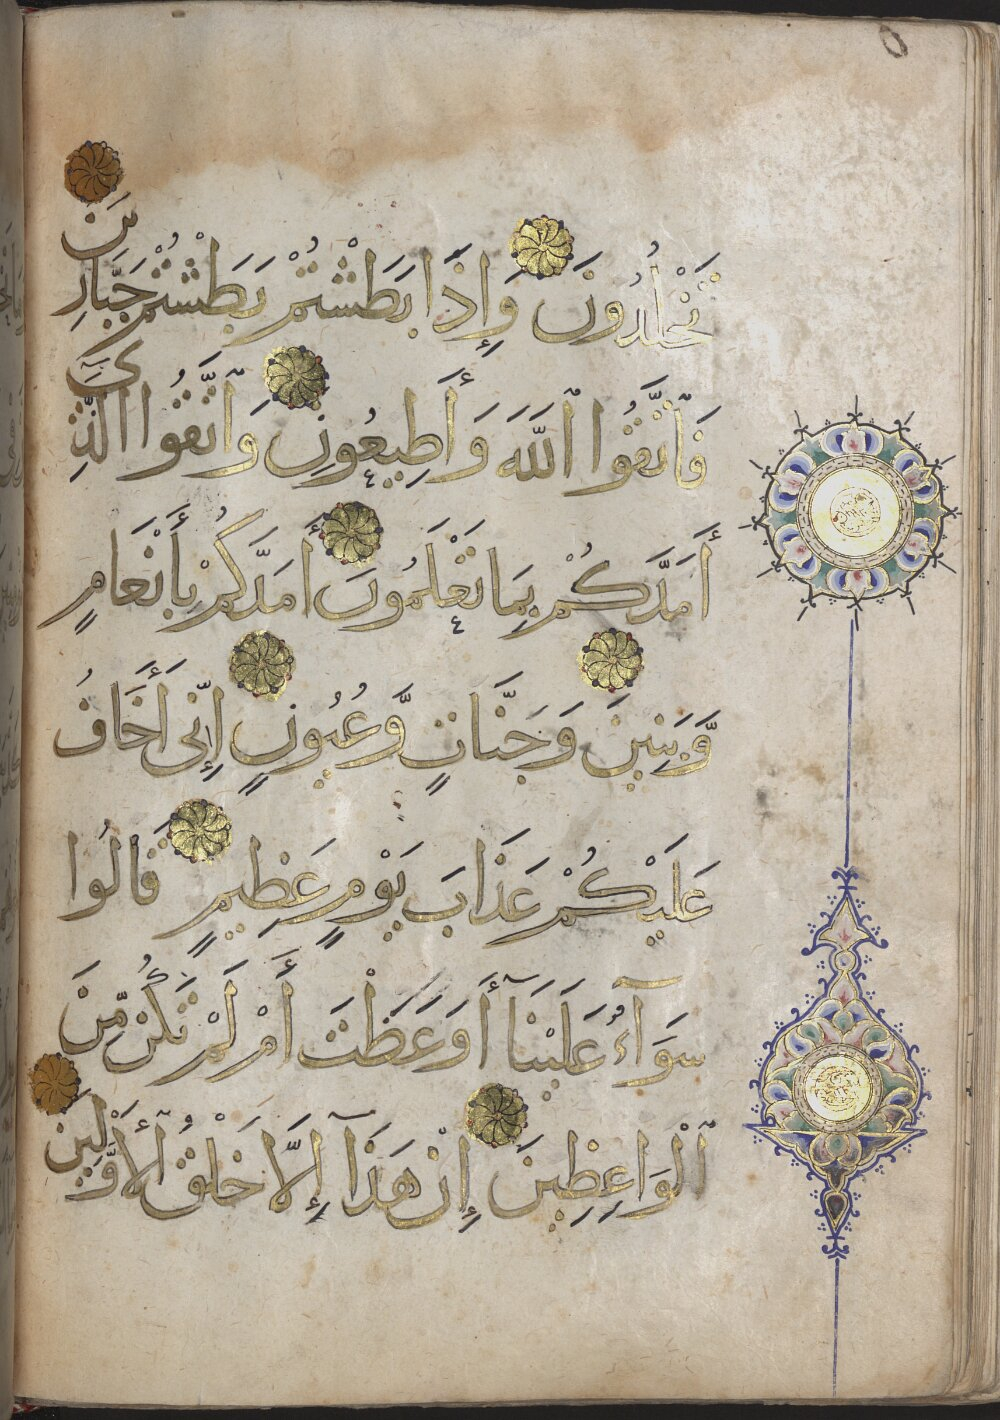 تَخْلُدُونَ وَإِذَا بَطَشْتُمْ بَطَشْتُمْ جَبَّارِينَ
فَاتَّقُوا اللَّهَ وَأَطِيعُونِ وَاتَّقُوا الَّذِى
أَمَدَّكُمْ بِمَا تَعْلَمُونَ أَمَدَّكُمْ بِأَنْعَامٍ
وَّبَنِينَ وَجَنَّاتٍ وَّعُيُونٍ إِنِّى أَخَافُ
عَلَيْكُمْ عَذَابَ يَوْمٍ عَظِيمٍ قَالُوا
سَوَآءٌ عَلَيْنَآ أَوَعَظْتَ أَمْ لَمْ تَكُنْ مِّنَ
الْوَاعِظِينَ إِنْ هَذَآ إِلَّا خُلُقُ الْأَوَّلِينَ